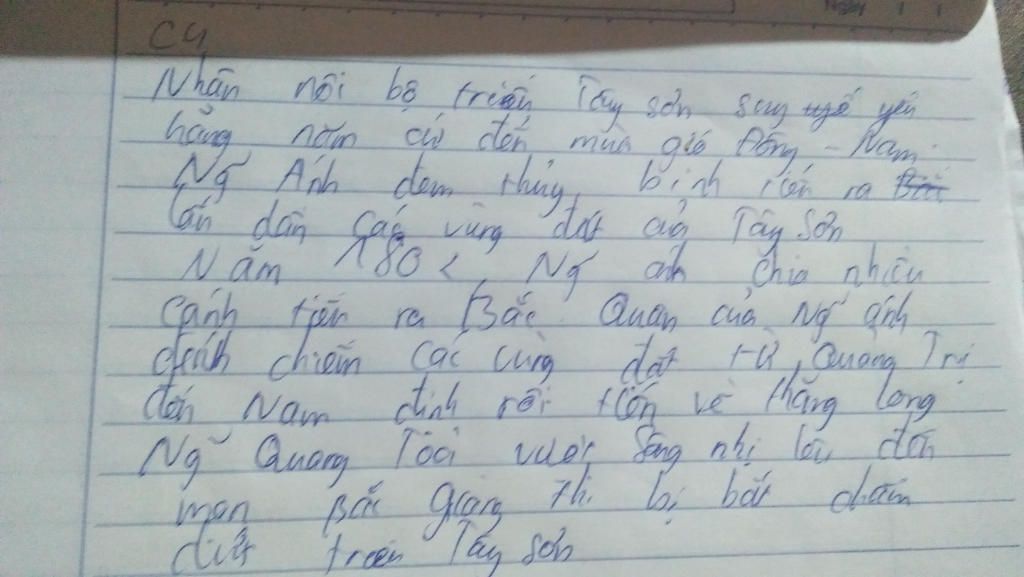 Ngày
C4
Nhân nội bộ triều Tây Sơn suy yếu
hằng năm cứ đến mùa gió Đông - Nam
Ng~ Ánh đem thủy binh tiến ra
lấn dần các vùng đất của Tây Sơn
Năm 180< Ng~ ánh chia nhiều
cánh tiến ra Bắc Quan của Ng~ ánh
đánh chiếm các vùng đất từ Quảng Trị
đến Nam định rồi tiến về thăng long
Ng~ Quang Toải vượt Sông nhị lên đến
man Bắc Giang thì bị bắt chấm
dứt triều Tây Sơn